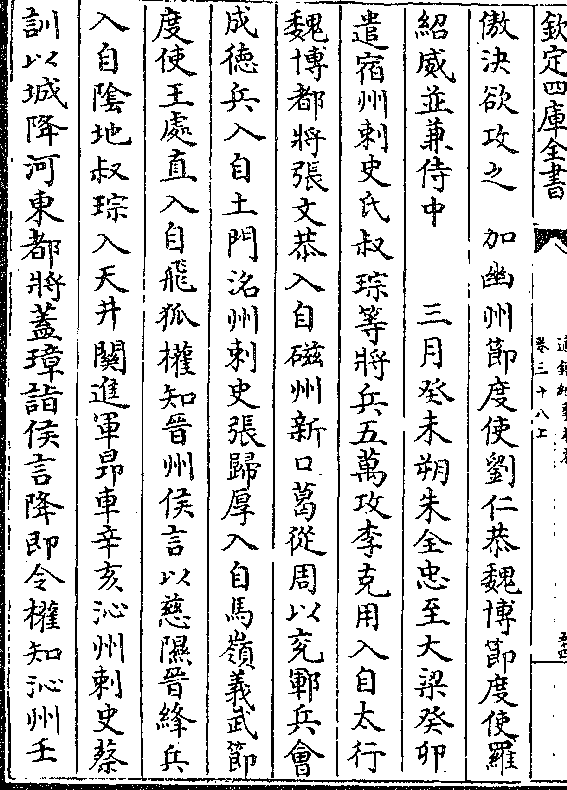 欽定四庫全書
通鑑紀事本末
卷三十八上
傲決欲攻之　加幽州節度使劉仁恭魏博節度使羅
紹威並兼侍中　三月癸未朔朱全忠至大梁癸卯
遣宿州刺史氏叔琮等將兵五萬攻李克用入自太行
魏博都將張文恭入自磁州新口葛從周以兗鄆兵會
成德兵入自土門洺州刺史張歸厚入自馬嶺義武節
度使王處直入自飛狐權知晉州侯言以慈隰晉絳兵
入自隂地叔琮入天井關進軍昂車辛亥沁州刺史蔡
訓以城降河東都將蓋璋詣侯言降即令權知沁州壬